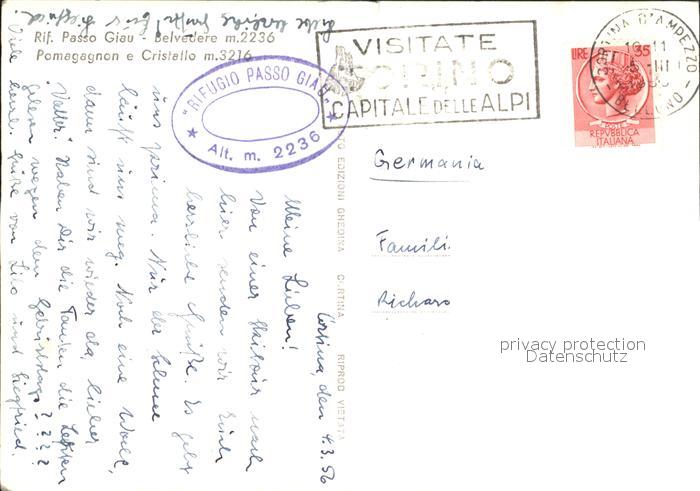 Rif. Passo Giau - Belvedere m.2236
Pomagagnon e Cristallo m.3216
VISITATE
CAPITALE DELLE ALPI
CORTINA D'AMPEZZO
BELLUNO
LIRE 35
POSTE
REPVBBLICA
ITALIANA
"RIFUGIO PASSO GIAU"
Alt. m. 2236
EDIZIONI GHEDINA CORTINA RIPROD VIETATA
Germania
Famili.
Richard
privacy protection
Datenschutz
Cortina, den 4.3.56
Meine Lieben!
Von einer Skitour nach
hier senden wir Euch
herzliche Grüße. Es geht
uns prima. Nur der Schnee
läuft uns weg. Noch eine Woche,
dann sind wir wieder da, lieber
Vatter! Haben Dir die Tauben die Letzten
wegen dem Geburtstag????
Viele Grüße von Lilo und Siegfried.